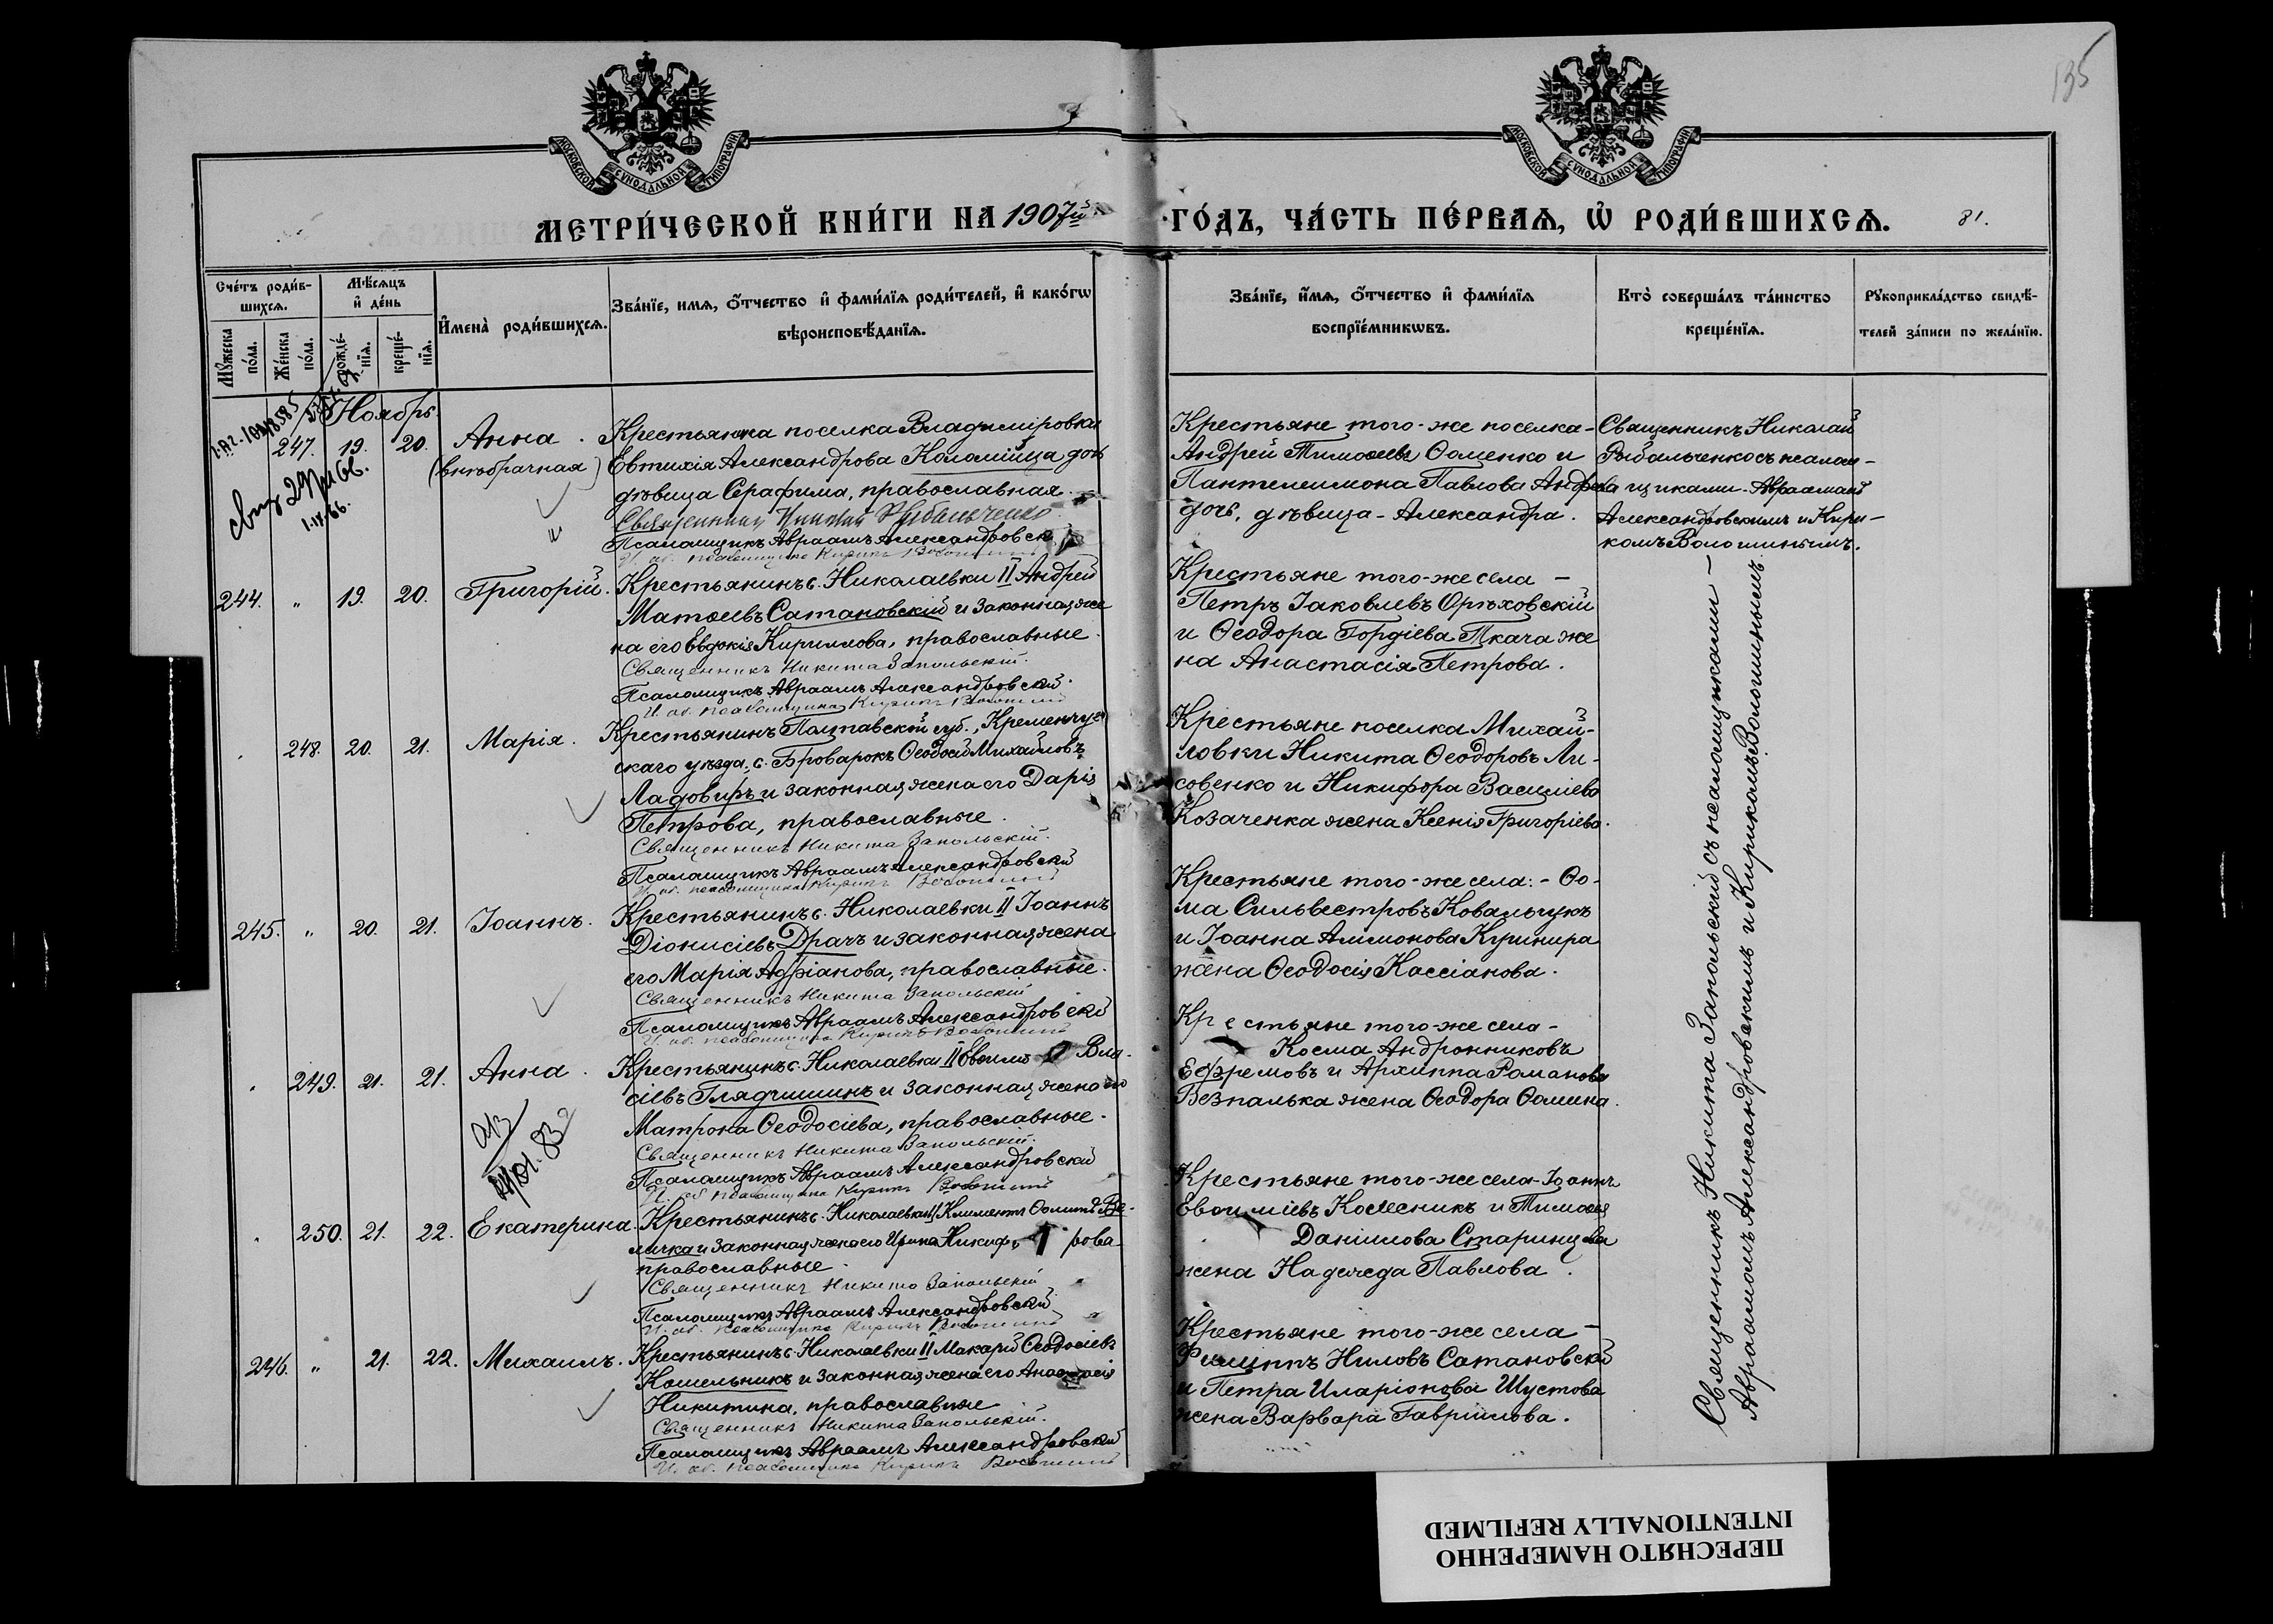 135
МОСКОВСКОЙ СУНОДАЛЬНОЙ ТИПОГРАФІИ
МОСКОВСКОЙ СУНОДАЛЬНОЙ ТИПОГРАФІИ
МЕТРИ́ЧЕСКОЙ КНИ́ГИ НА 1907й
ГО́ДЪ, ЧА́СТЬ ПЕ́РВАѦ, Ѡ҆ РОДИ́ВШИХСѦ.
81.
Сче́тъ роди́в-
шихсѧ.
Мꙋ́жеска по́ла.
Же́нска по́ла.
Мѣ́сѧцъ
и҆ де́нь
рожде́-
нїѧ.
креще́-
нїѧ.
И҆мена̀ роди́вшихсѧ.
Зва́нїе, имѧ, ѻ҆́тчество и҆ фами́лїѧ роди́телей, и҆ како́гѡ
вѣроисповѣ́данїѧ.
Зва́нїе, и҆́мѧ, ѻ҆́тчество и҆ фами́лїѧ
воспрїе́мникѡвъ.
Кто̀ соверша́лъ та́инство
креще́нїѧ.
Рꙋкоприкла́дство свидѣ́-
телей за́писи по жела́нїю.
Ноябрь.
247. 19. 20. Анна.
(внѣбрачная)
Крестьянка поселка Владиміровки
Евтихія Александрова Коломійца дочь
дѣвица Серафима, православная.
Священникъ Николай Рыбальченко
Псаломщикъ Авраамъ Александровскій
И. об. псаломщика Кирикъ Волошинъ
Крестьяне того-же поселка-
Андрей Тимоѳеевъ Ѳоменко и
Пантелеимона Павлова
дочь, дѣвица - Александра.
Священникъ Николай
Рыбальченко съ псалом-
щиками - Авраамомъ
Александровскимъ и Кири-
комъ Волошинымъ.
244. " 19. 20. Григорій.
Крестьянинъ с. Николаевки II Андрей
Матѳеевъ Сатановскій и законная же
на его Евдокія Кириллова, православные.
Священникъ Никита Запольскій.
Псаломщикъ Авраамъ Александровскій.
И. об. псаломщика Кирикъ Волошинъ
Крестьяне того-же села -
Петръ Іаковлевъ Орѣховскій
и Ѳеодора Гордіева Ткача же
на Анастасія Петрова.
248. 20. 21. Марія.
Крестьянинъ Полтавской губ., Кременчуг
скаго уѣзда, с. Броварокъ Ѳеодосій Михайловъ
Ладовиръ и законная жена его Дарія
Петрова, православные.
Священникъ Никита Запольскій.
Псаломщикъ Авраамъ Александровскій
И. об. псаломщика Кирикъ Волошинъ
Крестьяне поселка Михай-
ловки Никита Ѳеодоровъ Ли-
совенко и Никифора Василіева
Козаченка жена Ксенія Григоріева.
245. " 20. 21. Іоаннъ.
Крестьянинъ с. Николаевки II Іоаннъ
Діонисіевъ Драчъ и законная жена
его Марія Адріанова, православные.
Священникъ Никита Запольскій
Псаломщикъ Авраамъ Александровскій
И. об. псаломщика Кирикъ Волошинъ
Крестьяне того-же села: - Ѳо-
ма Сильвестровъ Ковальчукъ
и Іоанна Алимонова
жена Ѳеодосія Кассіанова.
249. 21. 21. Анна.
Крестьянинъ с. Николаевки II Евѳимъ Вла-
сіевъ Глядчишинъ и законная жена его
Матрона Ѳеодосіева, православные.
Священникъ Никита Запольскій.
Псаломщикъ Авраамъ Александровскій
И. об. псаломщика Кирикъ Волошинъ
Крестьяне того-же села -
Косма Андронниковъ
Ефремовъ и Архиппа Романова
Безпалька жена Ѳеодора Ѳомина.
250. 21. 22. Екатерина.
Крестьянинъ с. Николаевки II Климентъ Ѳоминъ Ве-
личка и законная жена его Ирина Никифорова
православные.
Священникъ Никита Запольскій
Псаломщикъ Авраамъ Александровскій
И. об. псаломщика Кирикъ Волошинъ
Крестьяне того-же села - Іоаннъ
Евѳиміевъ Колесникъ и Тимоѳея
Даніилова Старинцева
жена Надежда Павлова.
246. " 21. 22. Михаилъ.
Крестьянинъ с. Николаевки II Макарій Ѳеодосіевъ
Кошельникъ и законная жена его Анастасія
Никитина, православные
Священникъ Никита Запольскій.
Псаломщикъ Авраамъ Александровскій
И. об. псаломщика Кирикъ Волошинъ
Крестьяне того-же села -
Филиппъ Ниловъ Сатановскій
и Петра Иларіонова Шустова
жена Варвара Гавріилова.
Священникъ Никита Запольскій съ псаломщиками -
Авраамомъ Александровскимъ и Кирикомъ Волошинымъ
ПЕРЕСНЯТО НАМЕРЕННО
INTENTIONALLY REFILMED